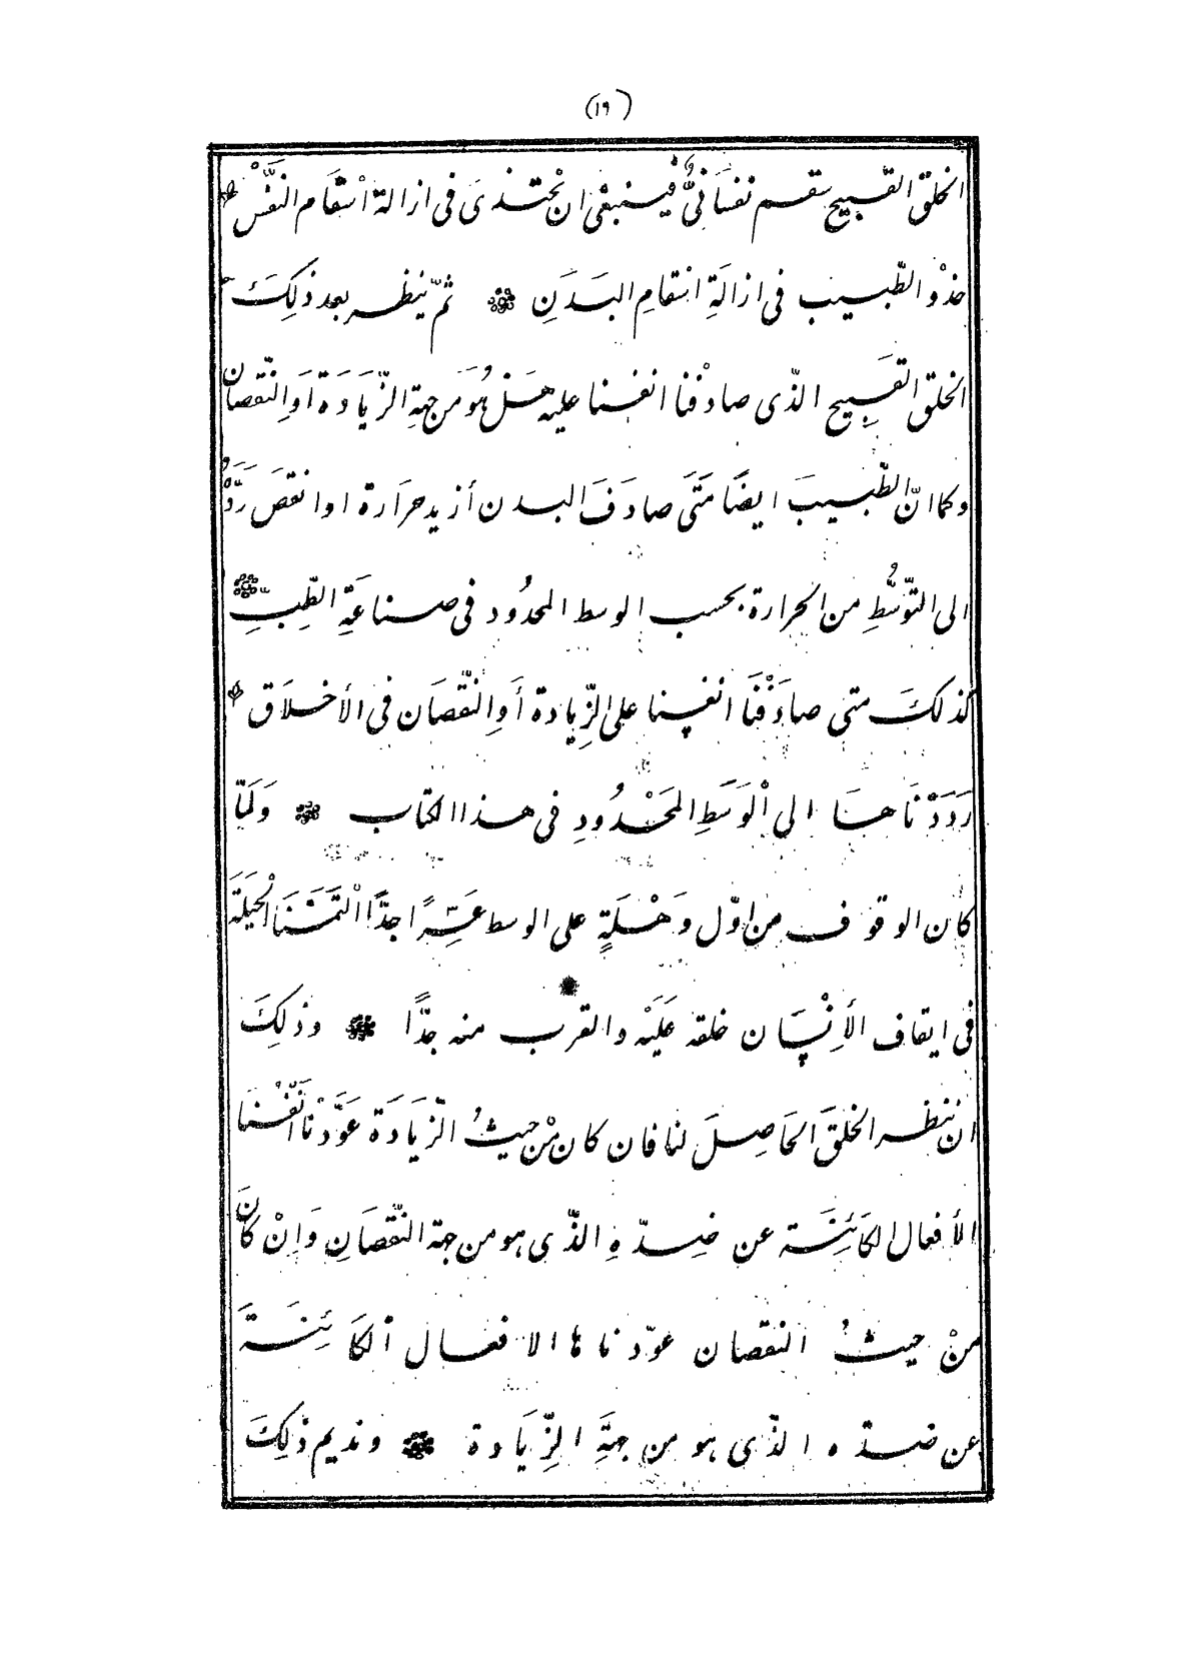 (١٩)
الخلق القبيح سقم نفسَانیٌّ فينبغی ان نحْتذیَ فی ازالة اسْقَام النَّفْسْ
حذْو الطّبيب فی ازالَةِ اسْقامِ البَدَنِ ثمّ ينظر بعد ذٰلِكَ
الخلق القَبِيح الّذی صادفْنا انفسنا عليه هَلْ هُوَ مَن جهةِ الزِّيَادَة اَوَالنّقصان
وكما انّ الطّبيبَ ايضًا مَتَی صادَفَ البدن أزيد حرَارة او انقصَ رَدَّهُ
الی التّوَسُّطِ من الحرارة بحسب الوسط المحدُود فی صناعَةِ الطِّبِّ
كذلكَ متی صادَفْنَا انفسنا علی الزِّيادة أَوِالنّقْصَان فی الأخلَاق
رَدَدْنَاهَا الی الْوَسَطِ المَحْدُودِ فی هذا الكتاب وَلَمّا
كان الوقوف من اوّل وَهْلَةٍ علی الوسط عَسِرًا جدًّا الْتَمَسْنَا الْحِيلَةَ
فی ايقاف الأِنْسَان خلقه عَلَيْه والقرب منه جدًّا وذٰلِكَ
ان ننظر الخلقَ الحَاصِلَ لنا فان كان مْن حيثُ الزّيَادَة عَوَّدْنَا انَفُسْنَا
الأفعال الكَائِنَة عن ضِدّهِ الذّی هو من جهة النّقصَانِ وَاِنْ كَانَ
منْ حيثُ النقصان عوّدناها الافعال الكَائِنَةَ
عن ضدّه الذّی هو من جهةَِ الزِّيَادة ونديم ذٰلِكَ